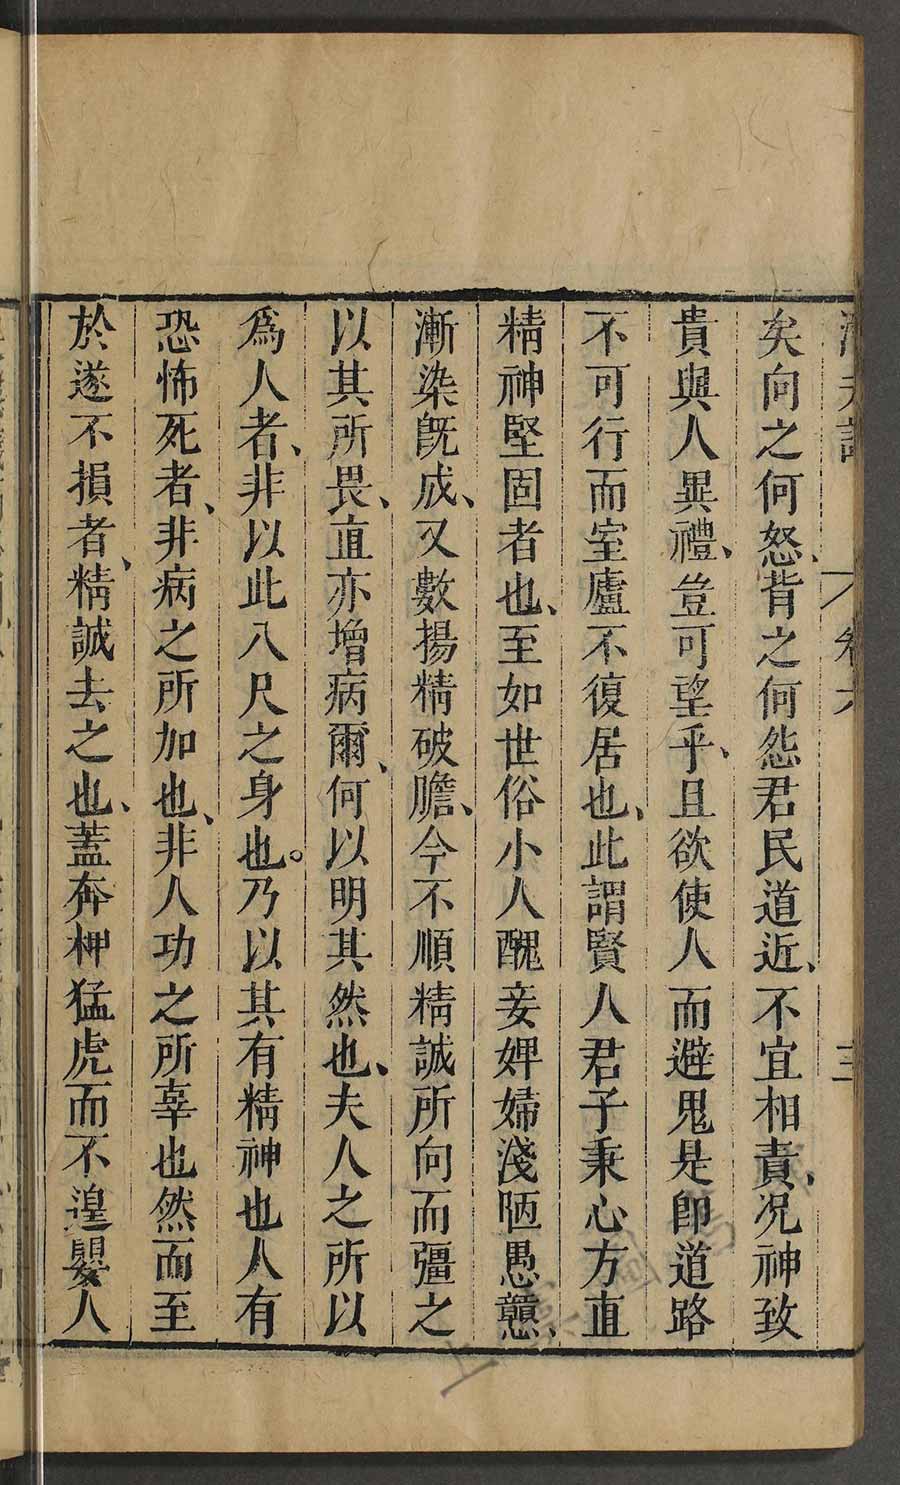 矣向之何怒、背之何怨君民道近、不宜相責、况神致
貴與人異禮、豈可望乎、且欲使人而避鬼是卽道路
不可行而室廬不復居也、此謂賢人君子秉心方直
精神堅固者也、至如世俗小人醜妾婢婦淺陋愚戇、
漸染旣成、又數揚精破膽、今不順精誠所向而彊之
以其所畏、直亦增病爾、何以明其然也、夫人之所以
爲人者、非以此八尺之身也。乃以其有精神也人有
恐怖死者、非病之所加也、非人功之所辜也然而至
於遂不損者、精誠去之也、蓋奔柙猛虎而不遑嬰人
卷六
三